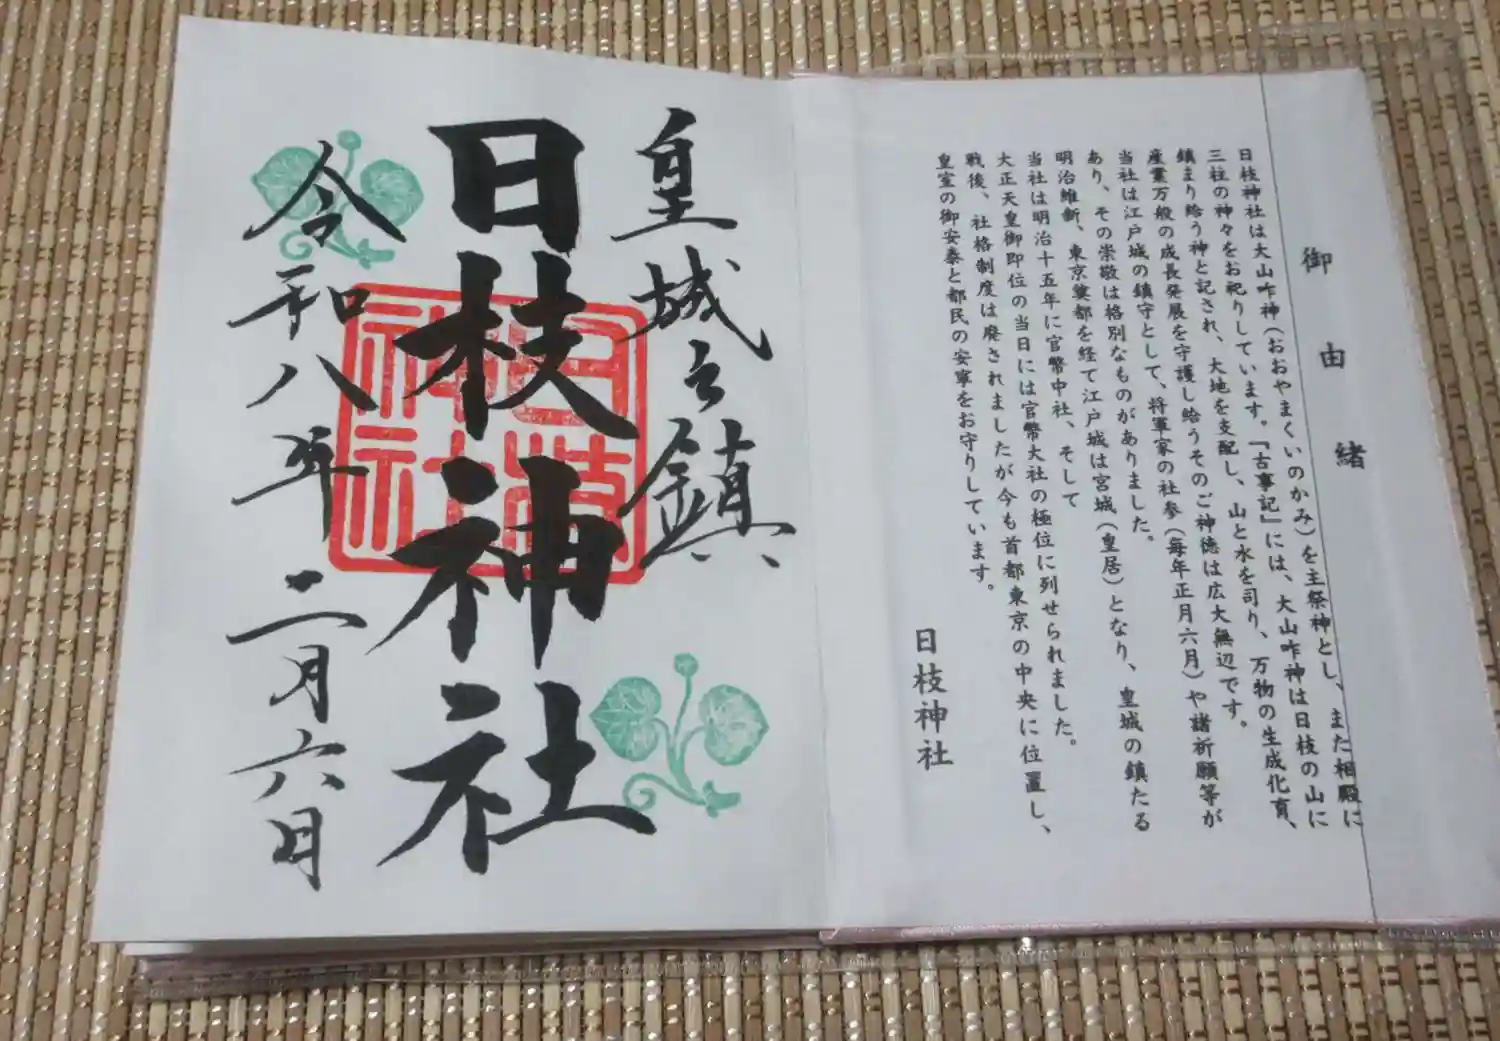 御由緒
日枝神社は大山咋神（おおやまくいのかみ）を主祭神とし、また相殿に
三柱の神々をお祀りしています。「古事記」には、大山咋神は日枝の山に
鎮まり給う神と記され、大地を支配し、山と水を司り、万物の生成化育、
産業万般の成長発展を守護し給うそのご神徳は広大無辺です。
当社は江戸城の鎮守として、将軍家の社参（毎年正月六月）や諸祈願等が
あり、その崇敬は格別なものがありました。
明治維新、東京奠都を経て江戸城は宮城（皇居）となり、皇城の鎮たる
当社は明治十五年に官幣中社、そして
大正天皇御即位の当日には官幣大社の極位に列せられました。
戦後、社格制度は廃されましたが今も首都東京の中央に位置し、
皇室の御安泰と都民の安寧をお守りしています。
日枝神社
皇城之鎮
日枝神社
日枝神社
令和八年二月六日